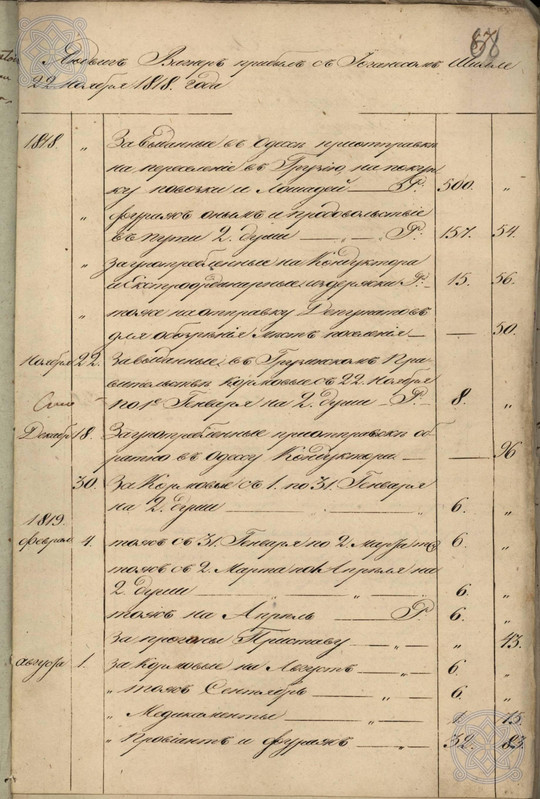 68
Людвигъ Вагнеръ прибылъ съ Іоганесомъ Шилле
22 Ноября 1818. года
1818. „ За выданные въ Одессѣ приотправкѣ
на переселеніе въ Грузію, на покуп-
ку повозки и Лошадей — Р: 500. „
„ фуражъ онымъ и продовольствіе
въ пути 2. души — Р: 157. 54.
„ Заупотребленные на Кондуктора
и Екстроординарные издержки Р: 15. 56.
„ тожъ на отправку Депутатовъ
для обозрѣнія мѣстъ поселенія — — 50.
Ноября 22. За выданные въ Грузинскомъ Пра-
вительствѣ кормовые съ 22. Ноября
по 1е Генваря на 2. души Р — 8. „
Декабр 18. Заупотребленные приотправкѣ об-
ратно въ Одессу Кондуктора — — 96
30. За Кормовые съ 1. по 31. Генваря
на 2. души — „ — 6. „
1819.
Февраля 4. тожъ съ 31. Генваря по 2. Марта 6. „
тожъ съ 2. Марта по 1 Апреля на
2. души — „ — „ — 6. „
тожъ на Апрель — Р 6. „
За прогоны Приставу — „ — „ 43.
Августа 1. За Кормовые на Августъ — „ — 6. „
„ тожъ Сентябрь — „ — 6. „
„ Медикаменты — „ — 1. 15.
„ Провіантъ и фуражъ — „ — 32. 83.